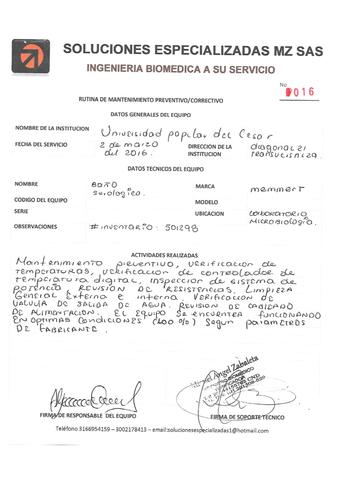 SOLUCIONES ESPECIALIZADAS MZ SAS
INGENIERIA BIOMEDICA A SU SERVICIO
No 0016
RUTINA DE MANTENIMIENTO PREVENTIVO/CORRECTIVO
DATOS GENERALES DEL EQUIPO
NOMBRE DE LA INSTITUCION Universidad popular del Cesar
FECHA DEL SERVICIO 2 de marzo del 2016. DIRECCION DE LA INSTITUCION diagonal 21
DATOS TECNICOS DEL EQUIPO
NOMBRE BAÑO serologico. MARCA memmert
CODIGO DEL EQUIPO MODELO
SERIE UBICACION LABORATORIO MICROBIOLOGIA.
OBSERVACIONES #inventario: 501298
ACTIVIDADES REALIZADAS
Mantenimiento preventivo, verificacion de
temperaturas, verificacion de controlador de
temperatura digital, inspeccion de sistema de
potencia REVISION DE RESISTENCIAS. LIMPIEZA
General Externa e interna. VERIFICACION DE
VALVULA DE SALIDA DE AGUA. REVISION DE CABLEADO
DE ALIMENTACION. EL EQUIPO SE ENCUENTRA FUNCIONANDO
EN OPTIMAS CONDICIONES (100%) SEGUN PARAMETROS
DE FABRICANTE.
Miguel Angel Zabaleta
FIRMA DE RESPONSABLE DEL EQUIPO FIRMA DE SOPORTE TECNICO
Teléfono 3166954159 – 3002178413 – email:solucionesespecializadas1@hotmail.com